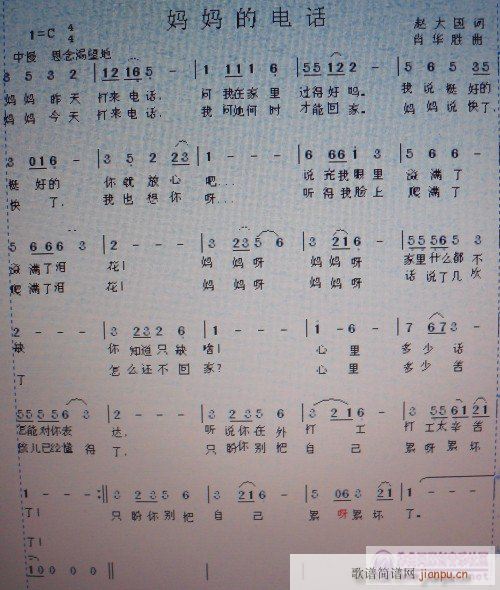 妈妈的电话
1=C 4/4
赵大国词
肖华胜曲
中慢 思念渴望地
3 5 3 2 | 12 16 5 - | 1 11 1 6 | 55 12 2 - | 5 6 6 5
妈妈昨天 打来电话， 问我在家里 过得好吗。 我说挺好的
妈妈今天 打来电话， 问她何时 才能回家。 妈妈说快了
3 01 6 - | 3 5 2 23 | 1 - - - | 6 66 1 3 | 5 6 6 -
挺好的 你就放心 吧... 说完我眼里 滚满了
快了， 我也想你 呀... 听得我脸上 爬满了
5 66 6 3 | 2 - - - | 3 23 5 6 | 3 21 6 - | 55 56 5 3
滚满了泪 花! 妈妈呀 妈妈呀 家里什么都不
爬满了泪 花! 妈妈呀 妈妈呀 话说了几次
2 - - - | 3 23 2 6 | 1 - - - | 1 - 6 - | 7 67 3 -
缺 你知道只缺 啥! 心里 多少话
了 怎么还不回 家? 心里 多少苦
55 55 6 3 | 2 - - - | 3 23 5 6 | 3 21 6 - | 3 55 61 21
怎能对你表 达， 听说你在外 打工 打工太辛苦
孩儿已经懂得 了， 只盼你别把 自己 累呀累坏
1 - - - :| 3 23 5 6 | 3 21 6 - | 5 06 3 21 | 1 - - -
了! 只盼你别把 自己 累呀累坏 了。
了!
1 0 0 0 0 0 0
歌谱简谱网 jianpu.cn